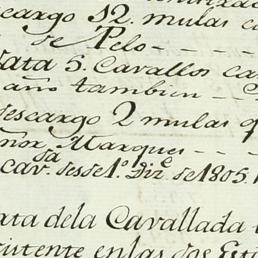 escargo 12. mulas ca
de Pelo - - - -
ata 5. Cavallos ca
año tambien -
descargo 2 mulas q
ñor Marques - - -
cav.da desde 1.o Diz.e de 1805.
ata dela Cavallada
istente enlas dos Est